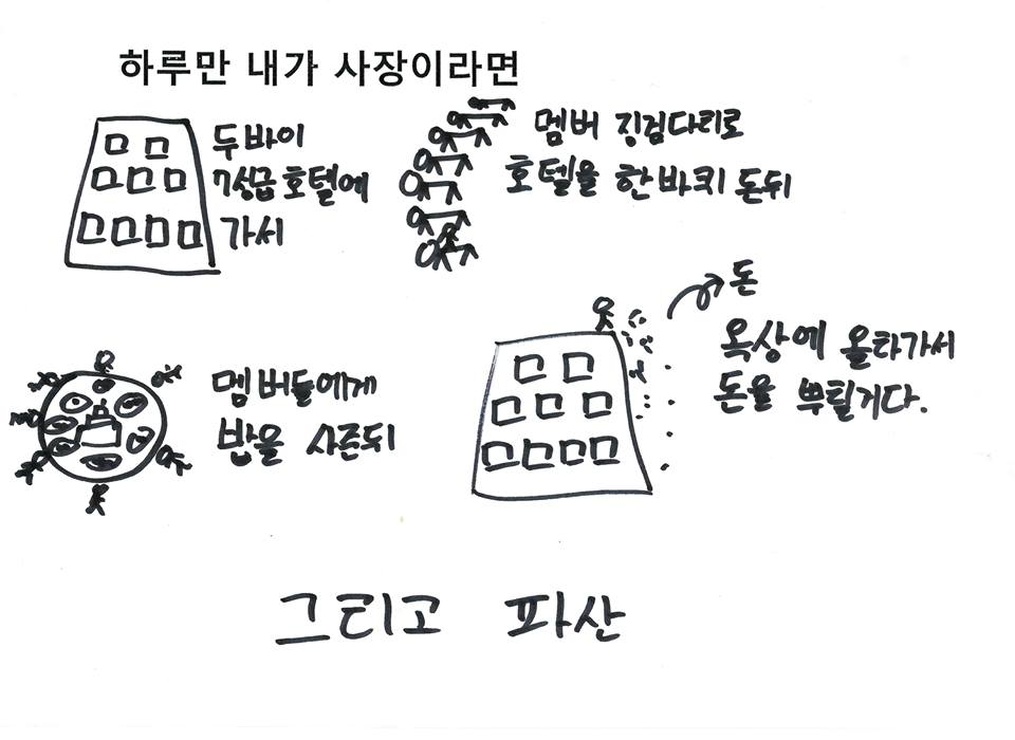 하루만 내가 사장이라면
두바이
7성급 호텔에
가서
멤버 징검다리로
호텔을 한바퀴 돈뒤
멤버들에게
밥을 사준뒤
돈
옥상에 올라가서
돈을 뿌릴거다.
그리고 파산